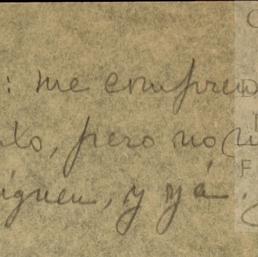 : me compren
to, pero no
iguen, y yá.